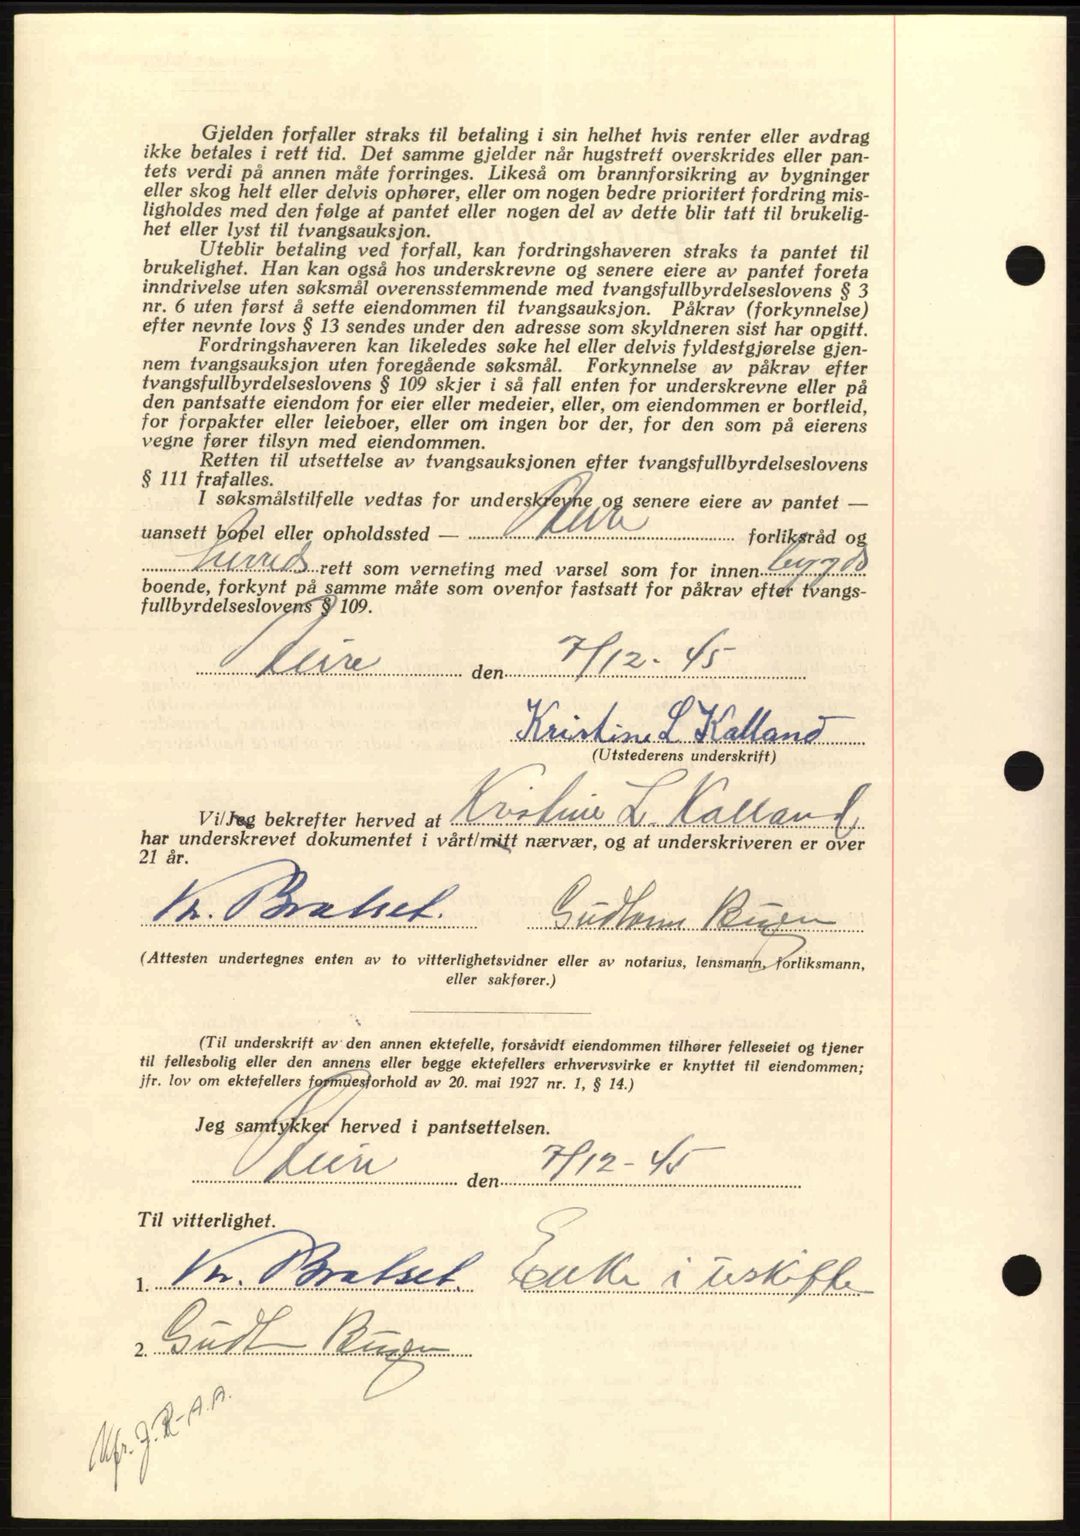 Gjelden forfaller straks til betaling i sin helhet hvis renter eller avdrag
ikke betales i rett tid. Det samme gjelder når hugstrett overskrides eller pan-
tets verdi på annen måte forringes. Likeså om brannforsikring av bygninger
eller skog helt eller delvis ophører, eller om nogen bedre prioritert fordring mis-
ligholdes med den følge at pantet eller nogen del av dette blir tatt til brukelig-
het eller lyst til tvangsauksjon.
Uteblir betaling ved forfall, kan fordringshaveren straks ta pantet til
brukelighet. Han kan også hos underskrevne og senere eiere av pantet foreta
inndrivelse uten søksmål overensstemmende med tvangsfullbyrdelseslovens § 3
nr. 6 uten først å sette eiendommen til tvangsauksjon. Påkrav (forkynnelse)
efter nevnte lovs § 13 sendes under den adresse som skyldneren sist har opgitt.
Fordringshaveren kan likeledes søke hel eller delvis fyldestgjørelse gjen-
nem tvangsauksjon uten foregående søksmål. Forkynnelse av påkrav efter
tvangsfullbyrdelseslovens § 109 skjer i så fall enten for underskrevne eller på
den pantsatte eiendom for eier eller medeier, eller, om eiendommen er bortleid,
for forpakter eller leieboer, eller om ingen bor der, for den som på eierens
vegne fører tilsyn med eiendommen.
Retten til utsettelse av tvangsauksjonen efter tvangsfullbyrdelseslovens
§ 111 frafalles.
I søksmålstilfelle vedtas for underskrevne og senere eiere av pantet —
uansett bopel eller opholdssted — forliksråd og
herreds rett som verneting med varsel som for innen bygds
boende, forkynt på samme måte som ovenfor fastsatt for påkrav efter tvangs-
fullbyrdelseslovens § 109.
den 7/12-45
Kristine L Kalland
(Utstederens underskrift)
Vi/Jeg bekrefter herved at Kristine L. Kalland
har underskrevet dokumentet i vårt/mitt nærvær, og at underskriveren er over
21 år.
Kr. Bratset.
(Attesten undertegnes enten av to vitterlighetsvidner eller av notarius, lensmann, forliksmann,
eller sakfører.)
(Til underskrift av den annen ektefelle, forsåvidt eiendommen tilhører felleseiet og tjener
til fellesbolig eller den annens eller begge ektefellers erhvervsvirke er knyttet til eiendommen;
jfr. lov om ektefellers formuesforhold av 20. mai 1927 nr. 1, § 14.)
Jeg samtykker herved i pantsettelsen.
den 7/12-45
Til vitterlighet.
1. Kr. Bratset. Enke i uskifte
2.